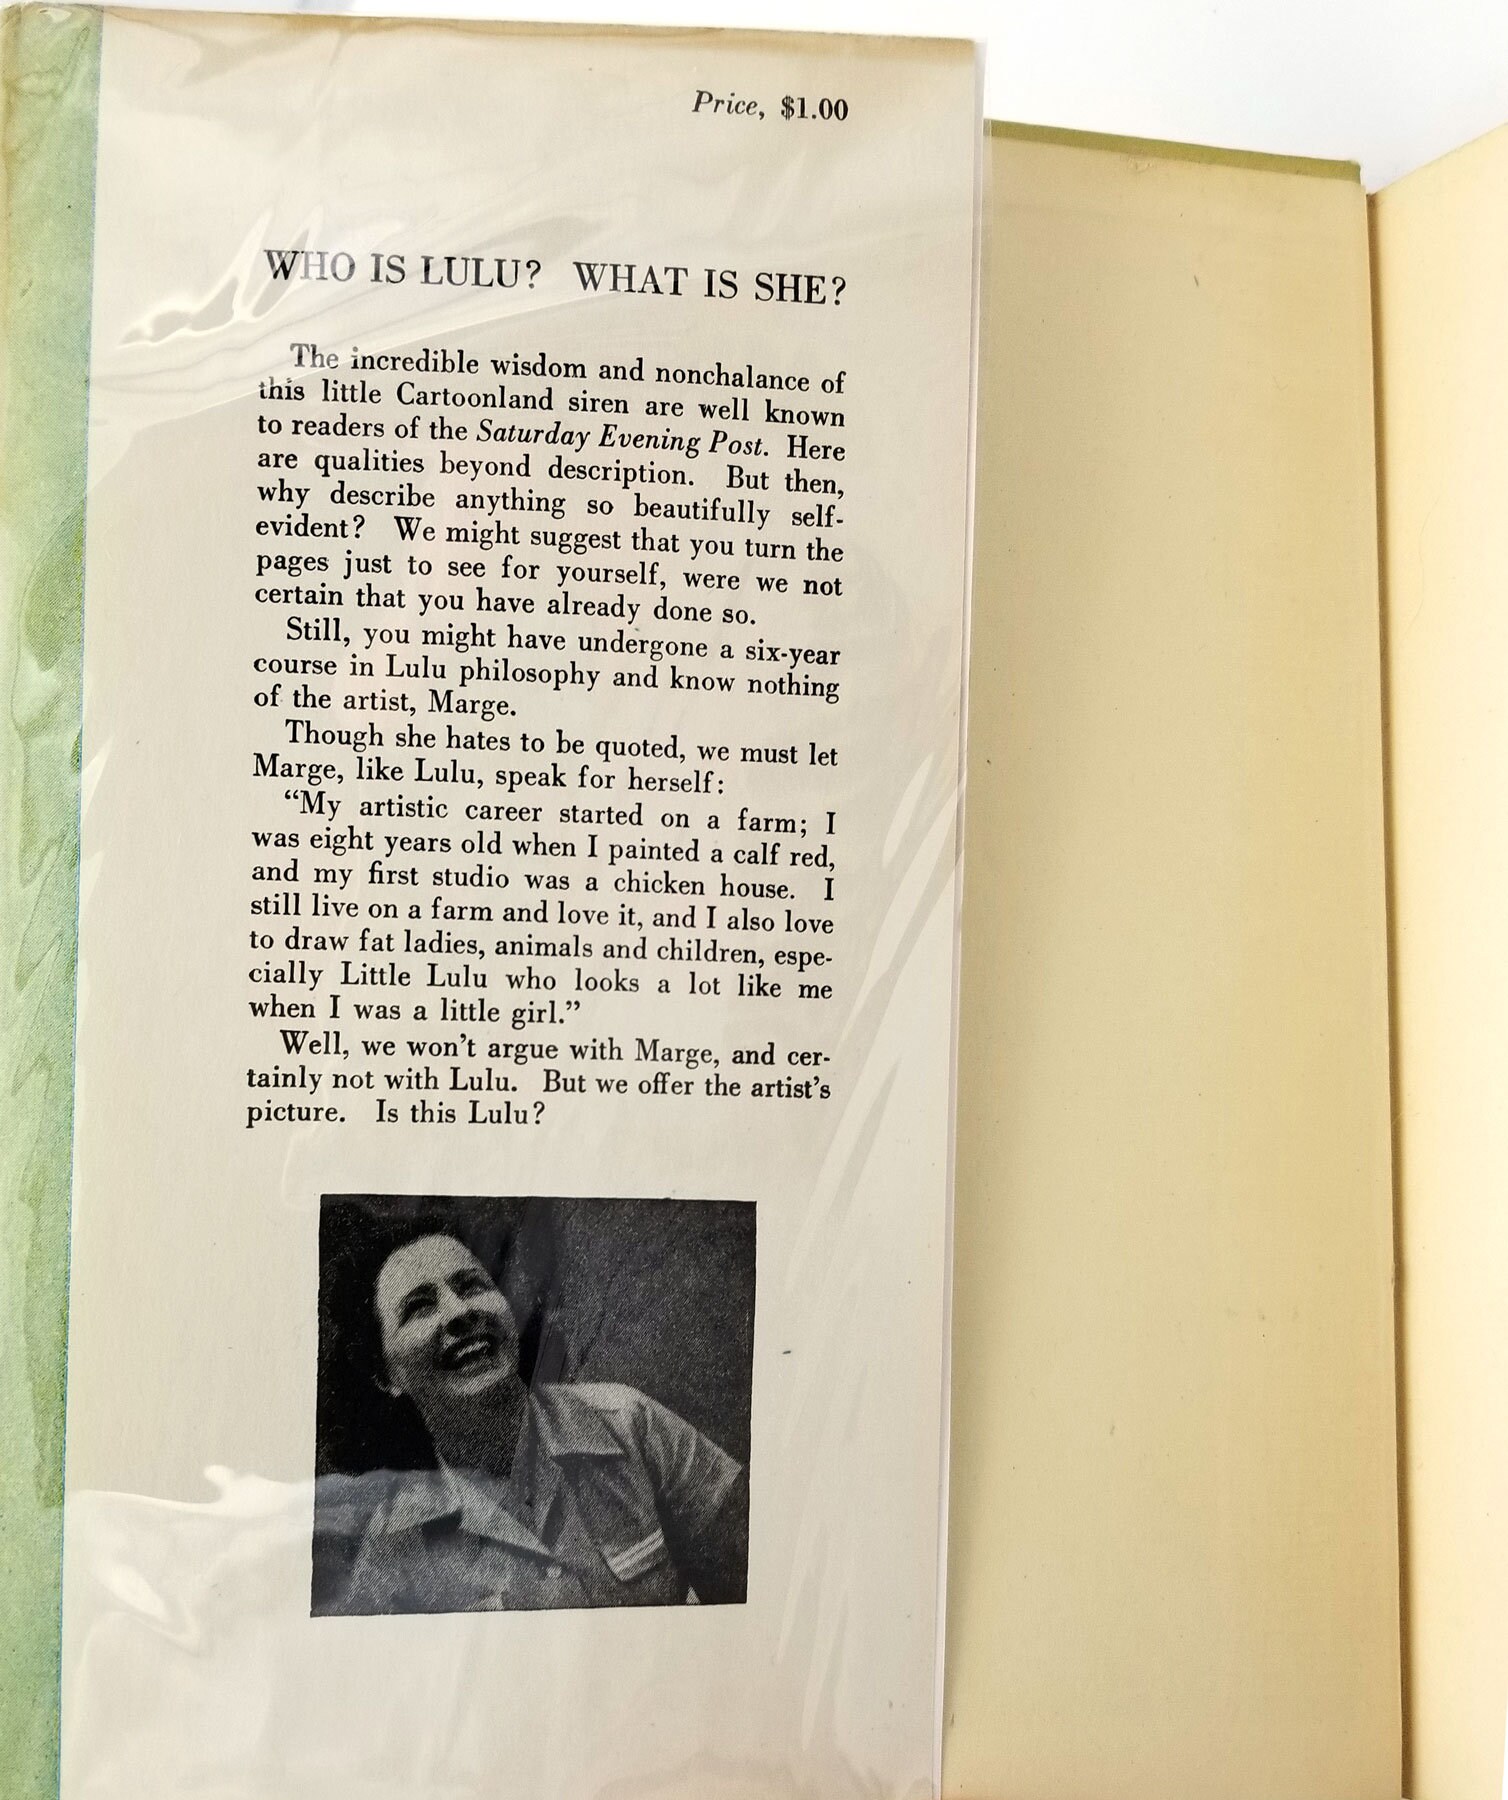 Price, $1.00
WHO IS LULU? WHAT IS SHE?
The incredible wisdom and nonchalance of
this little Cartoonland siren are well known
to readers of the Saturday Evening Post. Here
are qualities beyond description. But then,
why describe anything so beautifully self-
evident? We might suggest that you turn the
pages just to see for yourself, were we not
certain that you have already done so.
Still, you might have undergone a six-year
course in Lulu philosophy and know nothing
of the artist, Marge.
Though she hates to be quoted, we must let
Marge, like Lulu, speak for herself:
“My artistic career started on a farm; I
was eight years old when I painted a calf red,
and my first studio was a chicken house. I
still live on a farm and love it, and I also love
to draw fat ladies, animals and children, espe-
cially Little Lulu who looks a lot like me
when I was a little girl.”
Well, we won’t argue with Marge, and cer-
tainly not with Lulu. But we offer the artist’s
picture. Is this Lulu?